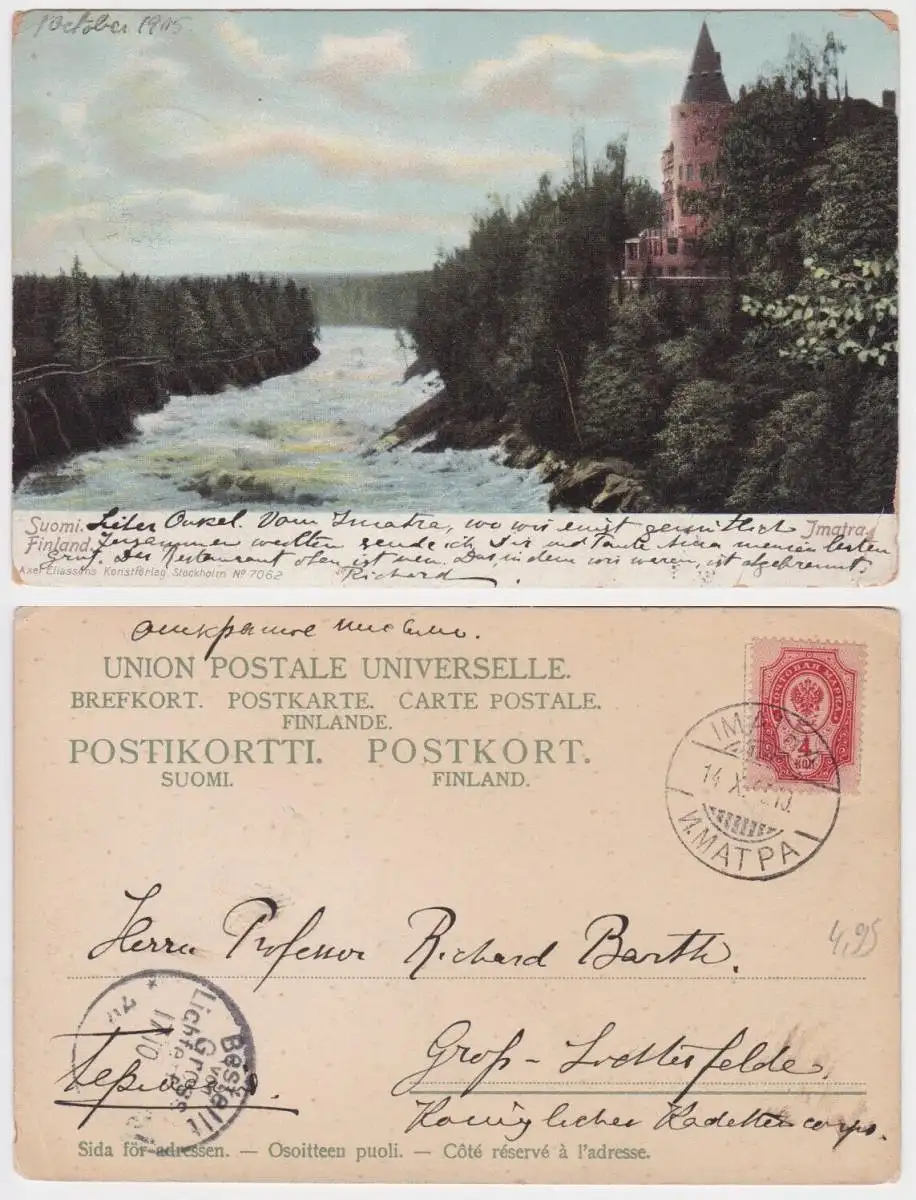 October 1905
Suomi. Lieber Onkel. Vom Imatra, wo wir einst gemütlich Imatra.
Finland. zusammen weilten sende ich Dir und Tante Nina meinen besten
Gruß. Das Restaurant oben ist neu. Das, in dem wir waren, ist abgebrannt.
Axel Eliassons Konstförlag, Stockholm Nº 7062
Richard
открытое письмо.
UNION POSTALE UNIVERSELLE.
BREFKORT. POSTKARTE. CARTE POSTALE.
FINLANDE.
POSTIKORTTI. POSTKORT.
SUOMI. FINLAND.
ПОЧТОВАЯ МАРКА
4
КОП
IMATRA
14 X
ИМАТРА
Herrn Professor Richard Barth.
4,95
Bestellt
vom
Gross
Lichterf
17/10
7
Groß-Lichterfelde.
Königlicher Kadettencorps.
Sida för adressen. — Osoitteen puoli. — Côté réservé à l'adresse.